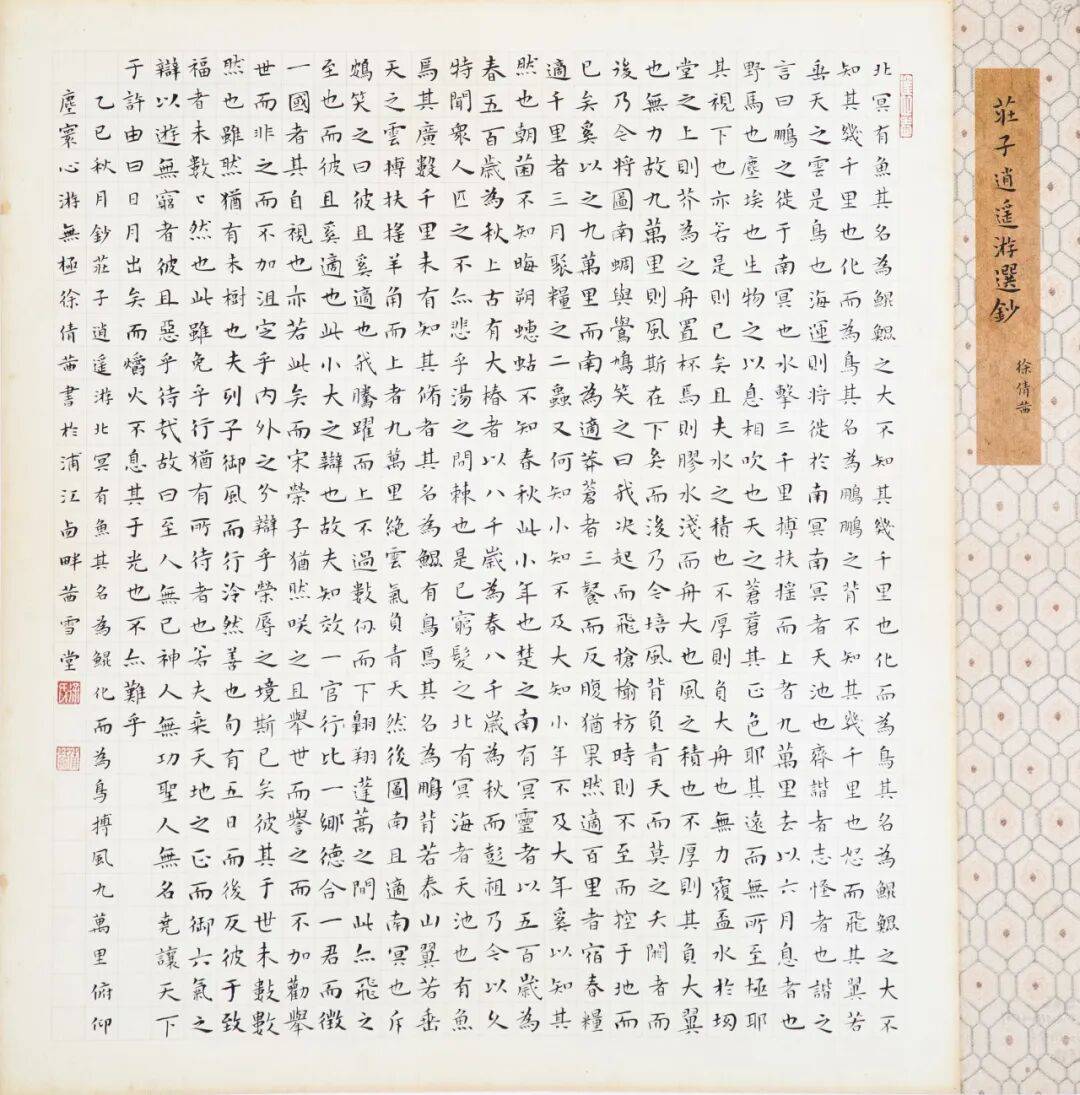 莊子逍遙游選鈔
徐倩茜
北冥有魚其名為鯤鯤之大不知其幾千里也化而為鳥其名為鯤鯤之大不
知其幾千里也化而為鳥其名為鵬鵬之背不知其幾千里也怒而飛其翼若
垂天之雲是鳥也海運則將徙於南冥南冥者天池也齊諧者志怪者也諧之
言曰鵬之徙于南冥也水擊三千里搏扶搖而上者九萬里去以六月息者也
野馬也塵埃也生物之以息相吹也天之蒼蒼其正色耶其遠而無所至極耶
其視下也亦若是則已矣且夫水之積也不厚則負大舟也無力覆盃水於坳
堂之上則芥為之舟置杯焉則膠水淺而舟大也風之積也不厚則其負大翼
也無力故九萬里則風斯在下矣而後乃今培風背負青天而莫之夭閼者而
後乃今將圖南蜩與鷽鳩笑之曰我決起而飛搶榆枋時則不至而控于地而
已矣奚以之九萬里而南為適莽蒼者三餐而反腹猶果然適百里者宿舂糧
適千里者三月聚糧之二蟲又何知小知不及大知小年不及大年奚以知其
然也朝菌不知晦朔蟪蛄不知春秋此小年也楚之南有冥靈者以五百歲為
春五百歲為秋上古有大椿者以八千歲為春八千歲為秋而彭祖乃今以久
特聞衆人匹之不亦悲乎湯之問棘也是已窮髮之北有冥海者天池也有魚
焉其廣數千里未有知其脩者其名為鯤有鳥焉其名為鵬背若泰山翼若垂
天之雲搏扶搖羊角而上者九萬里絕雲氣負青天然後圖南且適南冥也斥
鴳笑之曰彼且奚適也我騰躍而上不過數仞而下翱翔蓬蒿之間此亦飛之
至也而彼且奚適也此小大之辯也故夫知效一官行比一鄉德合一君而徵
一國者其自視也亦若此矣而宋榮子猶然咲之且舉世而譽之而不加勸舉
世而非之而不加沮定乎內外之分辯乎榮辱之境斯已矣彼其于世未數數
然也雖然猶有未樹也夫列子御風而行泠然善也旬有五日而後反彼于致
福者未數〻然也此雖免乎行猶有所待者也若夫乘天地之正而御六氣之
辯以遊無窮者彼且惡乎待哉故曰至人無己神人無功聖人無名堯讓天下
于許由曰日月出矣而爝火不息其于光也不亦難乎
乙巳秋月鈔莊子逍遙游北冥有魚其名為鯤化而為鳥搏風九萬里俯仰
塵寰心游無極徐倩茜書於浦江卥畔茜雪堂